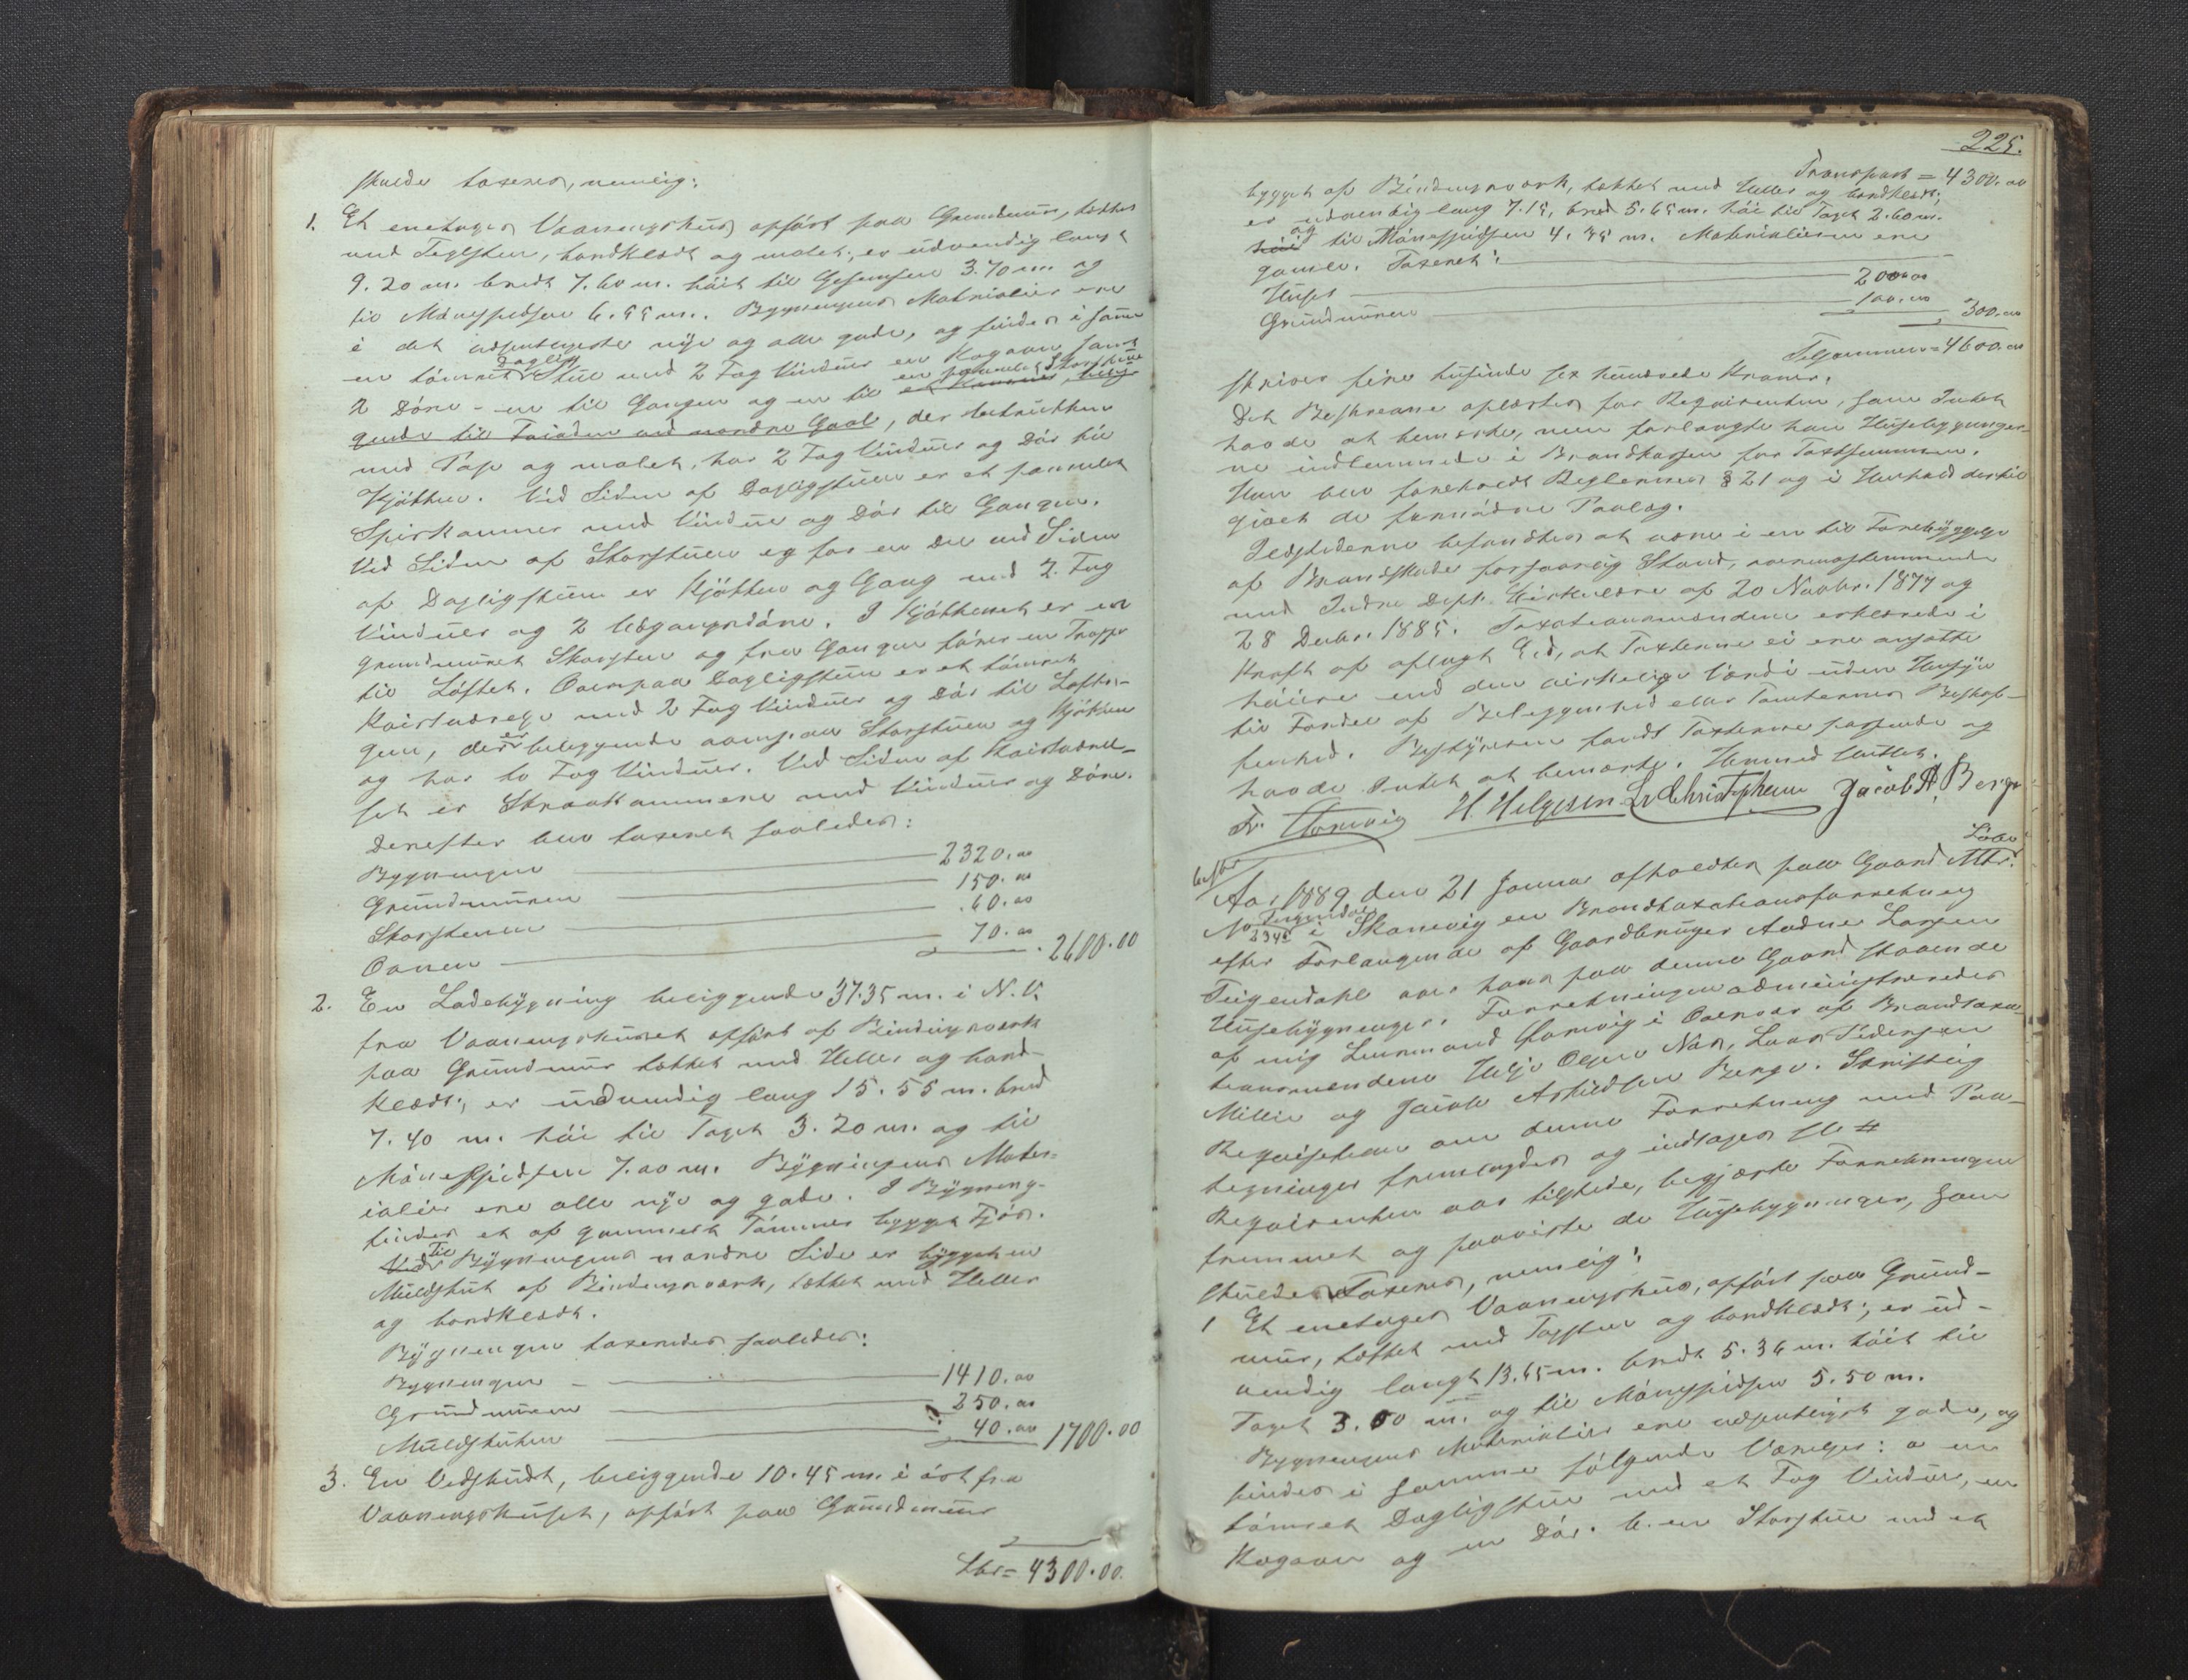 skulde taxeres, nemlig:
1. Et enetages Vaaningshus opført paa Grundmuur, tækket
med Teglsten, bordklædt og malet; er udvendig langt
9.20 m. bredt 7.60 m. höit til Gesimsen 3.70 m. og
til Mönespidsen 6.55 m. Bygningens Materialier ere
i det væsentligste nye og alle gode, og findes i samme
en tömret Daglig Stue med 2 Fag Vinduer en Kogeovn samt
2 Döre - en til Gangen og en til en panelet Storstue
et Kammer, belig-
gende til Faiaden ved nordre Gavl, der betrukken
med Pap og malet, har 2 Fag Vinduer og Dör til
Kjökken. Ved Siden af Dagligstuen er et pannelet
Spiskammer med Vindue og Dör til Gangen.
Ved Siden af Storstuen og for en Del ved Siden
af Dagligstuen er Kjökken og Gang med 2 Fag
Vinduer og 2 Udgangsdöre. I Kjökkenet er en
grundmuret Skorsten og fra Gangen förer en Trappe
til Löftet. Ovenpaa Dagligstuen er et tömret
Kvistværelse med 2 Fag Vinduer og Dör til Lofts-
gen, der er beliggende ovenpaa Storstuen og Kjökken
og har to Fag Vinduer. Ved Siden af Kvistværel-
set er Skraakammere med Vinduer og Döre.
Derefter blev taxeret saaledes:
Bygningen 2320.00
Grundmuren 150.00
Skorstenen 60.00
Ovnen 70.00 2600.00
2. En Ladebygning beliggende 37.35 m. i N.V.
fra Vaaningshuset opført af Bindingsværk
paa Grundmur tækket med Heller og bord-
klædt; er udvendig lang 15.55 m. bred
7.40 m. höi til Taget 3.20 m. og til
Mönespidsen 7.00 m. Bygningens Mater-
ialier ere alle nye og gode. I Bygning-
findes et af gammelt Tömmer bygget Fjös.
Ved Til Bygningens nordre Side er bygget en
Müldskut af Bindingsværk, tækket med Heller
og bordklædt.
Bygningen taxeredes saaledes:
Bygningen 1410.00
Grundmuren 250.00
Müldskuten 40.00 1700.00
3. En Vedskudt, beliggende 10.45 m. i öst fra
Vaaningshuset, opført paa Grundmuur
Lbr = 4300.00.
225.
Transport = 4300.00
bygget af Bindingsværk, tækket med Heller og bordklædt;
er udvendig lang 7.15, bred 5.65 m. höi til Taget 2.60 m.
höi og til Mönespidsen 4.35 m. Materialierne ere
gamle. Taxeret:
Huset 200.00
Grundmuren 100.00 300.00
Tilsammen = 4600.00
skriver fire tusinde sex hundrede Kroner.
Det Beskrevne oplæstes for Requirenten, som Intet
havde at bemærke, men forlangte han Husebygninger-
ne indlemmede i Brandkassen for Taxtsummen.
Han blev foreholdt Reglernes § 21 og i Henhold dertil
givet de fornödne Paalæg.
Ildstederne befandtes at være i en til Forebyggelse
af Brandskade forsvarlig Stand, overensstemmende
med Indre Dept. Cirkulære af 20 Novbr. 1877 og
28 Decbr. 1885. Taxationsmændene erklærede i
Kraft af aflagt Ed, at Taxterne ei ere ansatte
höiere end den virkelige Værdi uden Hensyn
til Fordel af Beliggenhed eller Tomternes Beskaf-
fenhed. Bestyreren fandt Taxterne passende og
havde Intet at bemærke. Hermed sluttet.
H. Helgesen L. Christophersen Jacob A. Berge
Aar 1889 den 21 Januar afholdtes paa Gaard Mtr.
No i Skonevig en Brandtaxationsforretning
efter Forlangende af Gaardbruger Aadne Larsen
Teigendahl over hans paa denne Gaard staaende
Husebygninger. Forretningen administreredes
af mig Lensmand i Overvær af Brandtaxa-
tionsmændene Helje Olsen Næs, Lars Pedersen
Millie og Jacob Askildsen Berge. Skriftlig
Requisition om denne Forretning med Paa-
tegninger fremlagdes og indtages
Requirenten var tilstede, begjærte Forretningen
fremmet og paaviste de Husebygninger, som
skulde Taxeres, nemlig:
1 Et enetages Vaaningshus, opført paa Grund-
mur, tækket med Tagsten og bordklædt; er ud-
vendig langt 13.65 m. bredt 5.36 m. höit til
Taget 3.00 m. og til Mönespidsen 5.50 m.
Bygningens Materialier ere væsentligst gode, og
findes i samme fölgende Værelser: a en
tömret Dagligstue med et Fag Vindue, en
Kogeovn og en Dör. b. en Storstue med et